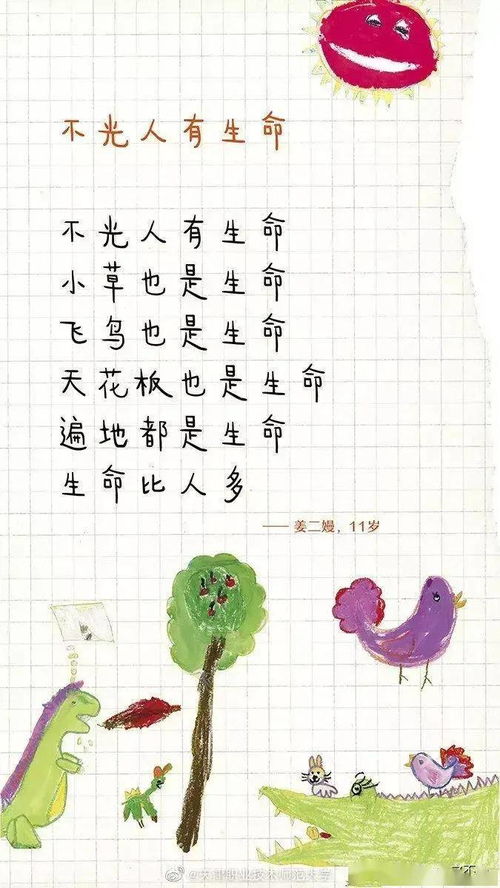 不光人有生命
不光人有生命
小草也是生命
飞鸟也是生命
天花板也是生命
遍地都是生命
生命比人多
—— 姜二嫚，11岁
@天津职业技术师范大学